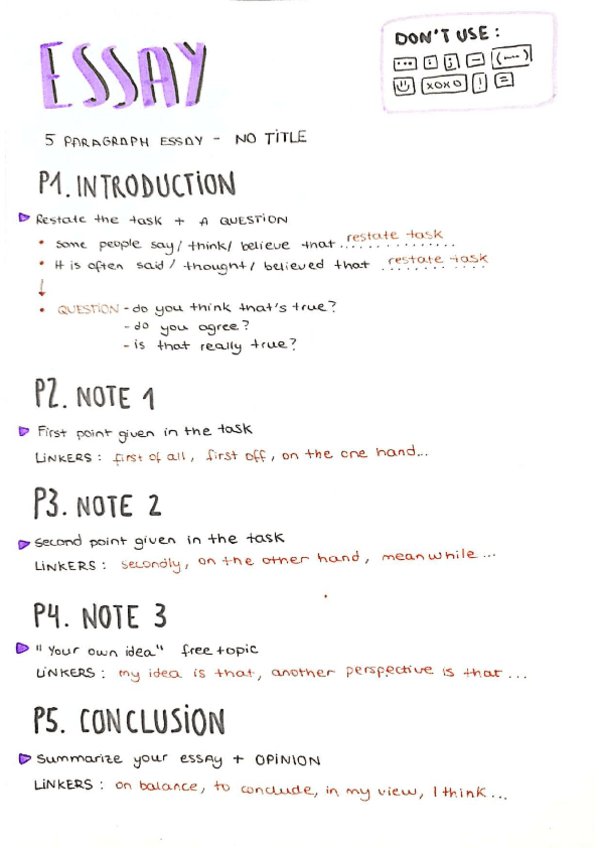 ESSAY
DON'T USE:
... : ; – (—)
☺ xoxo ! =
5 PARAGRAPH ESSAY - NO TITLE
P1. INTRODUCTION
Restate the task + A QUESTION
• some people say/ think/ believe that restate task
• It is often said/ thought/ believed that restate task
↓
• QUESTION - do you think that's true?
- do you agree?
- is that really true?
P2. NOTE 1
First point given in the task
LINKERS: first of all, first off, on the one hand...
P3. NOTE 2
Second point given in the task
LINKERS: secondly, on the other hand, meanwhile...
P4. NOTE 3
"Your own idea" free topic
LINKERS: my idea is that, another perspective is that...
P5. CONCLUSION
Summarize your essay + OPINION
LINKERS: on balance, to conclude, in my view, I think...